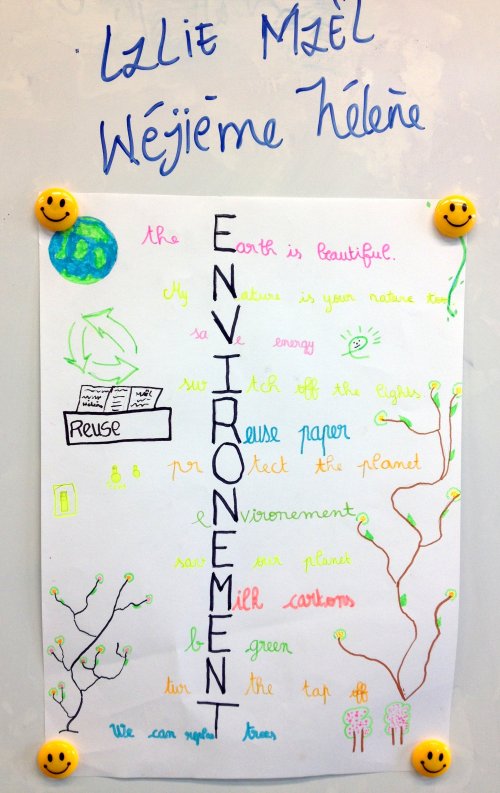 LaLIE MaËL
Wéjiéme Hélène
the Earth is beautiful.
My Nature is your nature too
saVe energy
swItch off the lights
REUSE
Reuse paper
prOtect the planet
eNvironement
savE our planet
Milk cartons
bE green
turN the tap off
We can replanT trees